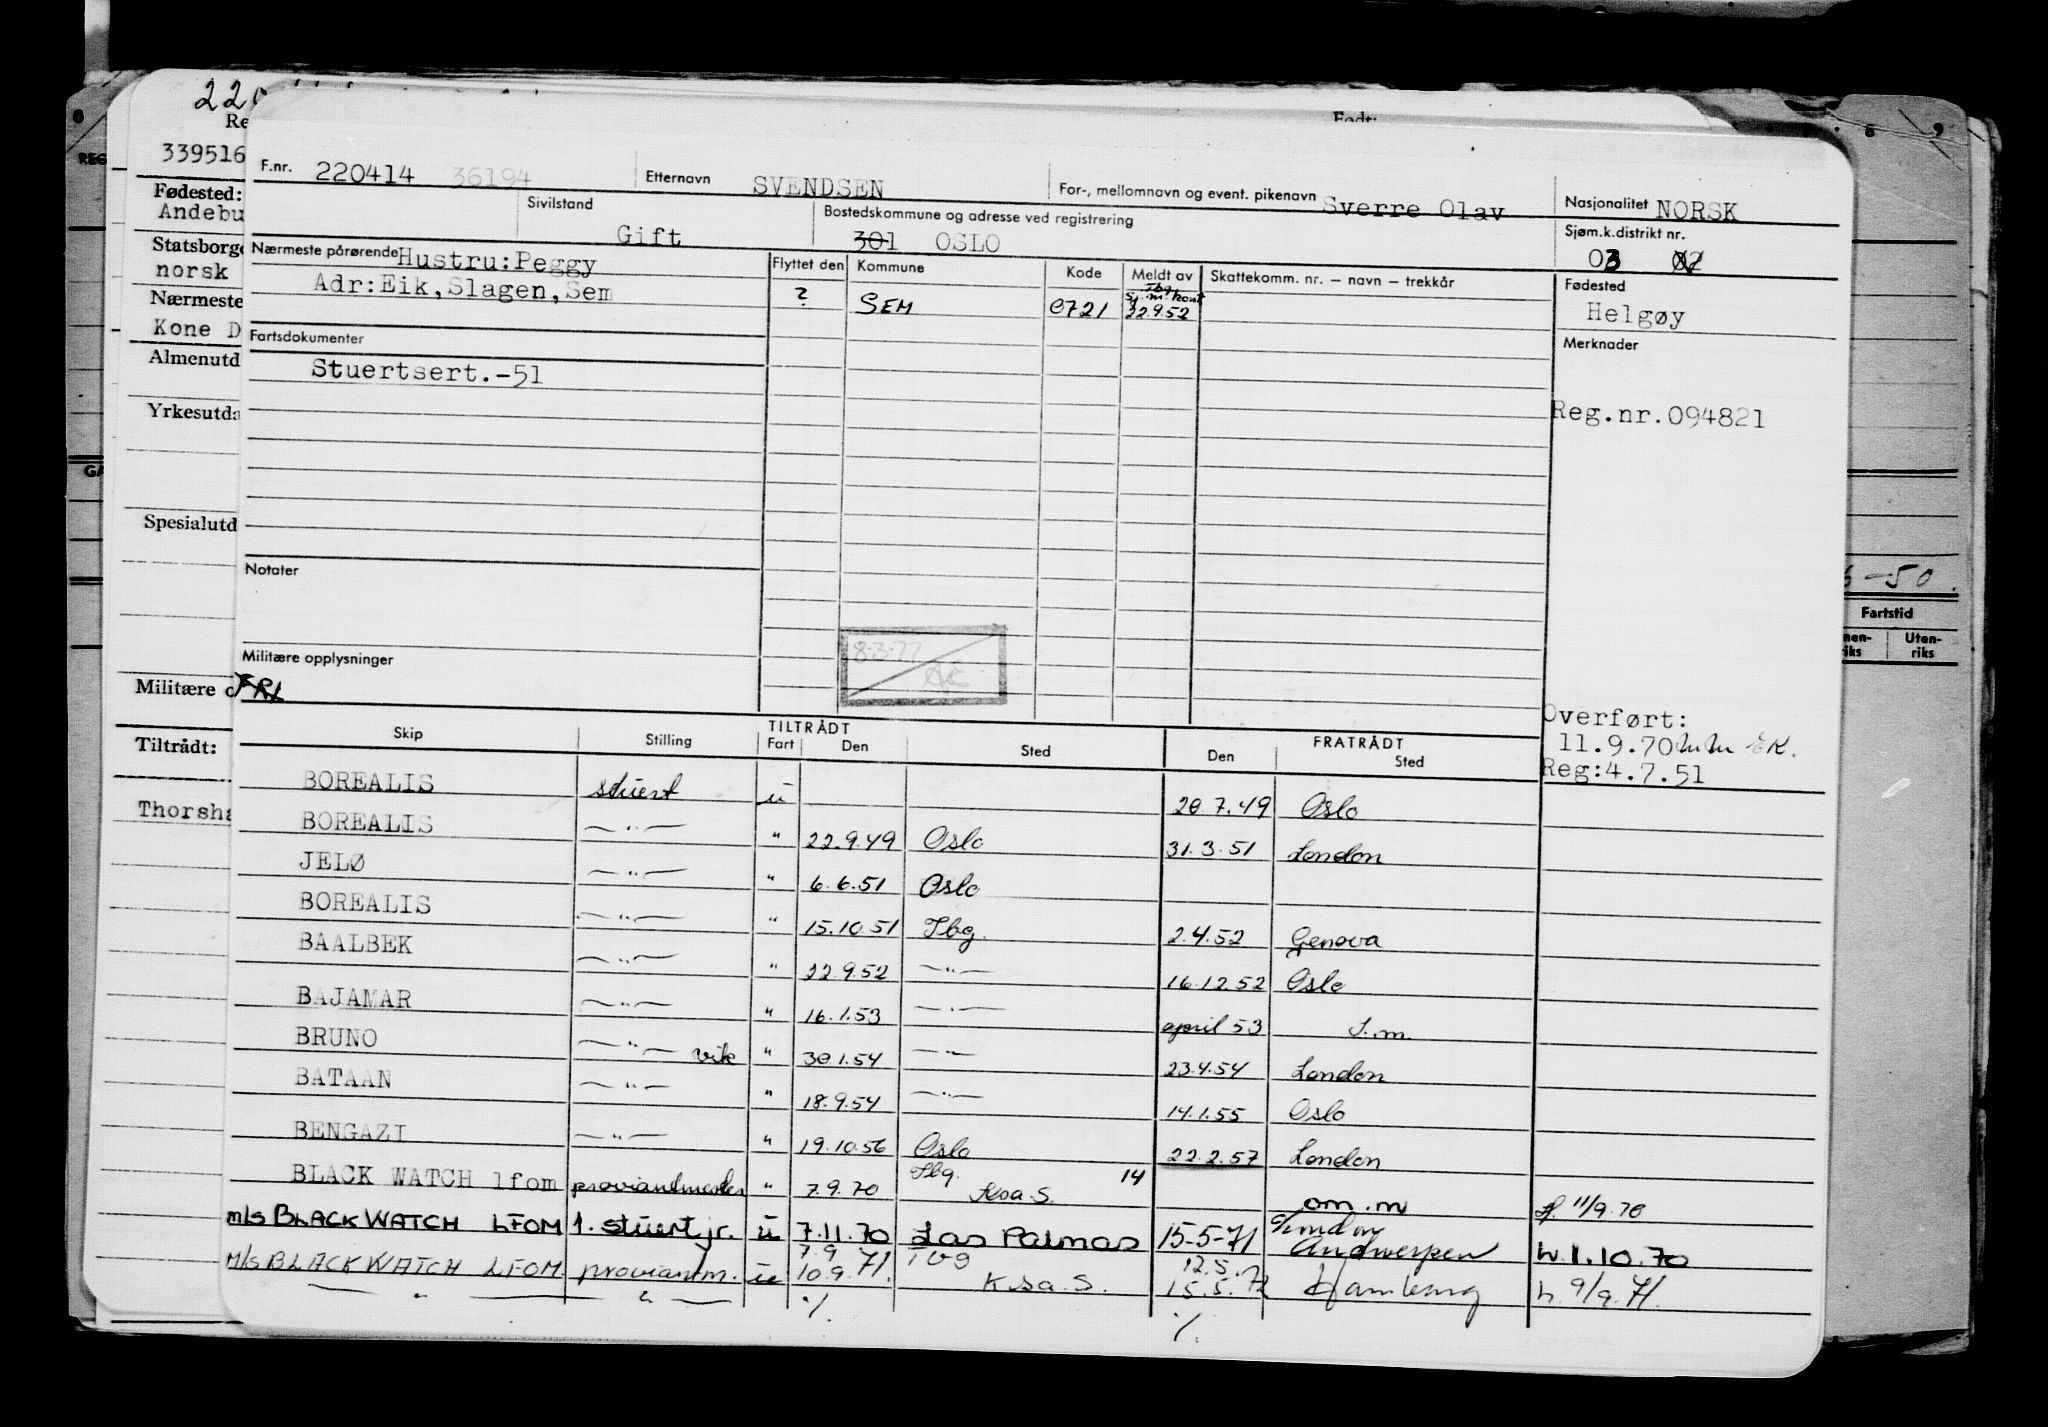 F.nr. 220414 36194 Etternavn SVENDSEN For-, mellomnavn og event. pikenavn Sverre Olav Nasjonalitet NORSK
Sivilstand Gift Bostedskommune og adresse ved registrering 301 OSLO Sjøm.k.distrikt nr. 03 02
Nærmeste pårørende Hustru:Peggy Flyttet den Kommune Kode Meldt av Skattekomm. nr. – navn – trekkår Fødested
Adr:Eik,Slagen,Sem ? SEM 0721 Tbg Sj.m.kont 22.9.52 Helgøy
Fartsdokumenter Merknader
Stuertsert.-51
Reg.nr.094821
Notater
8.3.77
Militære opplysninger
FRI
Overført:
11.9.70
Reg:4.7.51
TILTRÅDT FRATRÅDT
Skip Stilling Fart Den Sted Den Sted
BOREALIS stuert u 20.7.49 Oslo
BOREALIS —"— " 22.9.49 Oslo 31.3.51 London
JELØ —"— " 6.6.51 Oslo
BOREALIS —"— " 15.10.51 Tbg. 2.4.52 Genova
BAALBEK —"— " 22.9.52 —"— 16.12.52 Oslo
BAJAMAR —"— " 16.1.53 —"— april 53 s.m.
BRUNO —"— vik " 30.1.54 —"— 23.4.54 London
BATAAN —"— " 18.9.54 —"— 14.1.55 Oslo
BENGAZI —"— " 19.10.56 Oslo 22.2.57 London
BLACK WATCH lfom proviantmester " 7.9.70 Tbg. Ksa.S. 14 om.m 11/9.70
m/s BLACK WATCH LFOM 1. stuert jr. u 7.11.70 Las Palmas 15-5-71 Antwerpen h.1.10.70
m/s BLACK WATCH LFOM proviantm. u 7.9 10.9.71. Tbg Ksa.S. 12.5. 15.5.72 Hamburg h.9/9.71.
—"— —"— % %
220
Re
Født:
339516
Fødested:
Andebu
Statsborge
norsk
Nærmeste
Kone D
Almenutd
Yrkesutda
Spesialutd
Militære o
Tiltrådt:
Thorsha
REG
GA
8 9
-50
Fartstid
nen-riks Uten-riks